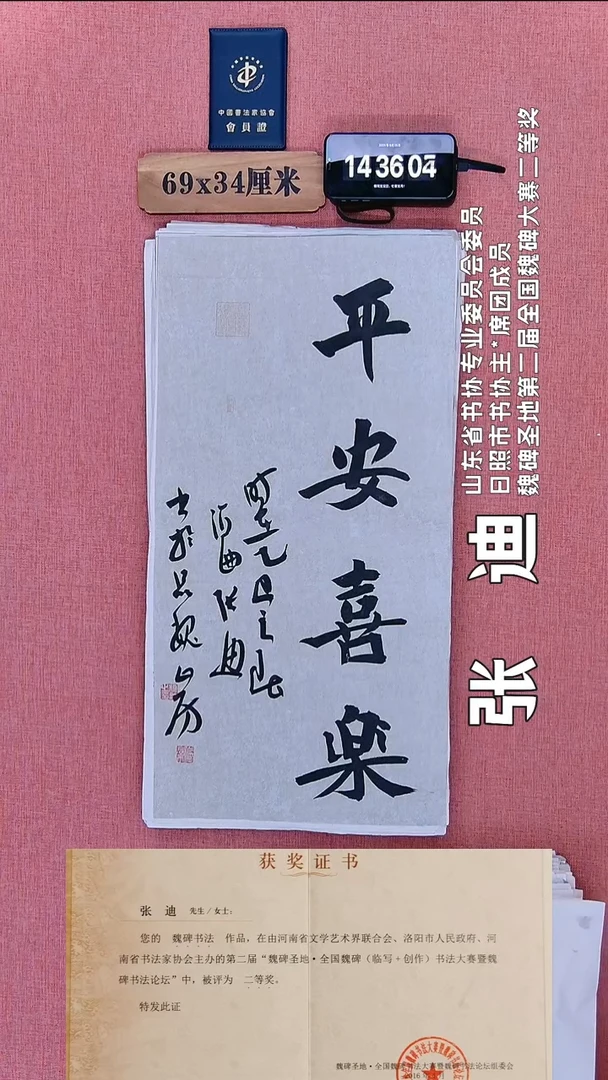 中國書法家協會
會員證
69x34厘米
14 36 04
平安喜樂
海曲張迪
山东省书协专业委员会委员
日照市书协主*席团成员
魏碑圣地第二届全国魏碑大赛二等奖
张迪
获奖证书
张 迪 先生/女士：
您的 魏碑书法 作品，在由河南省文学艺术界联合会、洛阳市人民政府、河
南省书法家协会主办的第二届“魏碑圣地·全国魏碑（临写+创作）书法大赛暨魏
碑书法论坛”中，被评为 二等奖。
特发此证
魏碑圣地·全国魏碑书法大赛暨魏碑书法论坛组委会